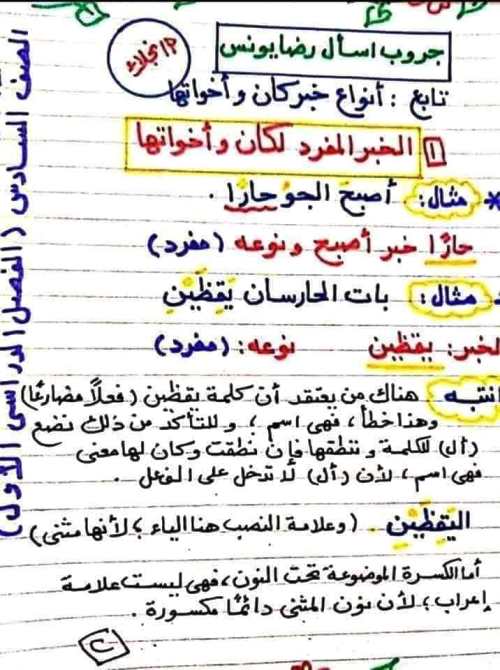 جروب اسأل رضا يونس
تابع : أنواع خبر كان وأخواتها
١ الخبر المفرد لكان وأخواتها
* مثال: أصبحَ الجوُّ حارًّا .
حارًّا خبر أصبح ونوعه (مفرد)
مثال: بات الحارسان يَقِظَيْنِ
الخبر: يقظين نوعه: (مفرد)
انتبه هناك من يعتقد أن كلمة يقظين (فعلاً مضارعًا)
وهذا خطأ، فهى اسم، وللتأكد من ذلك نضع
(أل) للكلمة وننطقها فإن نطقت وكان لها معنى
فهى اسم، لأن (أل) لا تدخل على الفعل .
اليَقِظَيْنِ . (وعلامة النصب هنا الياء؛ لأنها مثنى)
أما الكسرة الموضوعة تحت النون، فهى ليست علامة
إعراب؛ لأن نون المثنى دائمًا مكسورة .
٢
الصف السادس (الفصل الدراسى الأول)